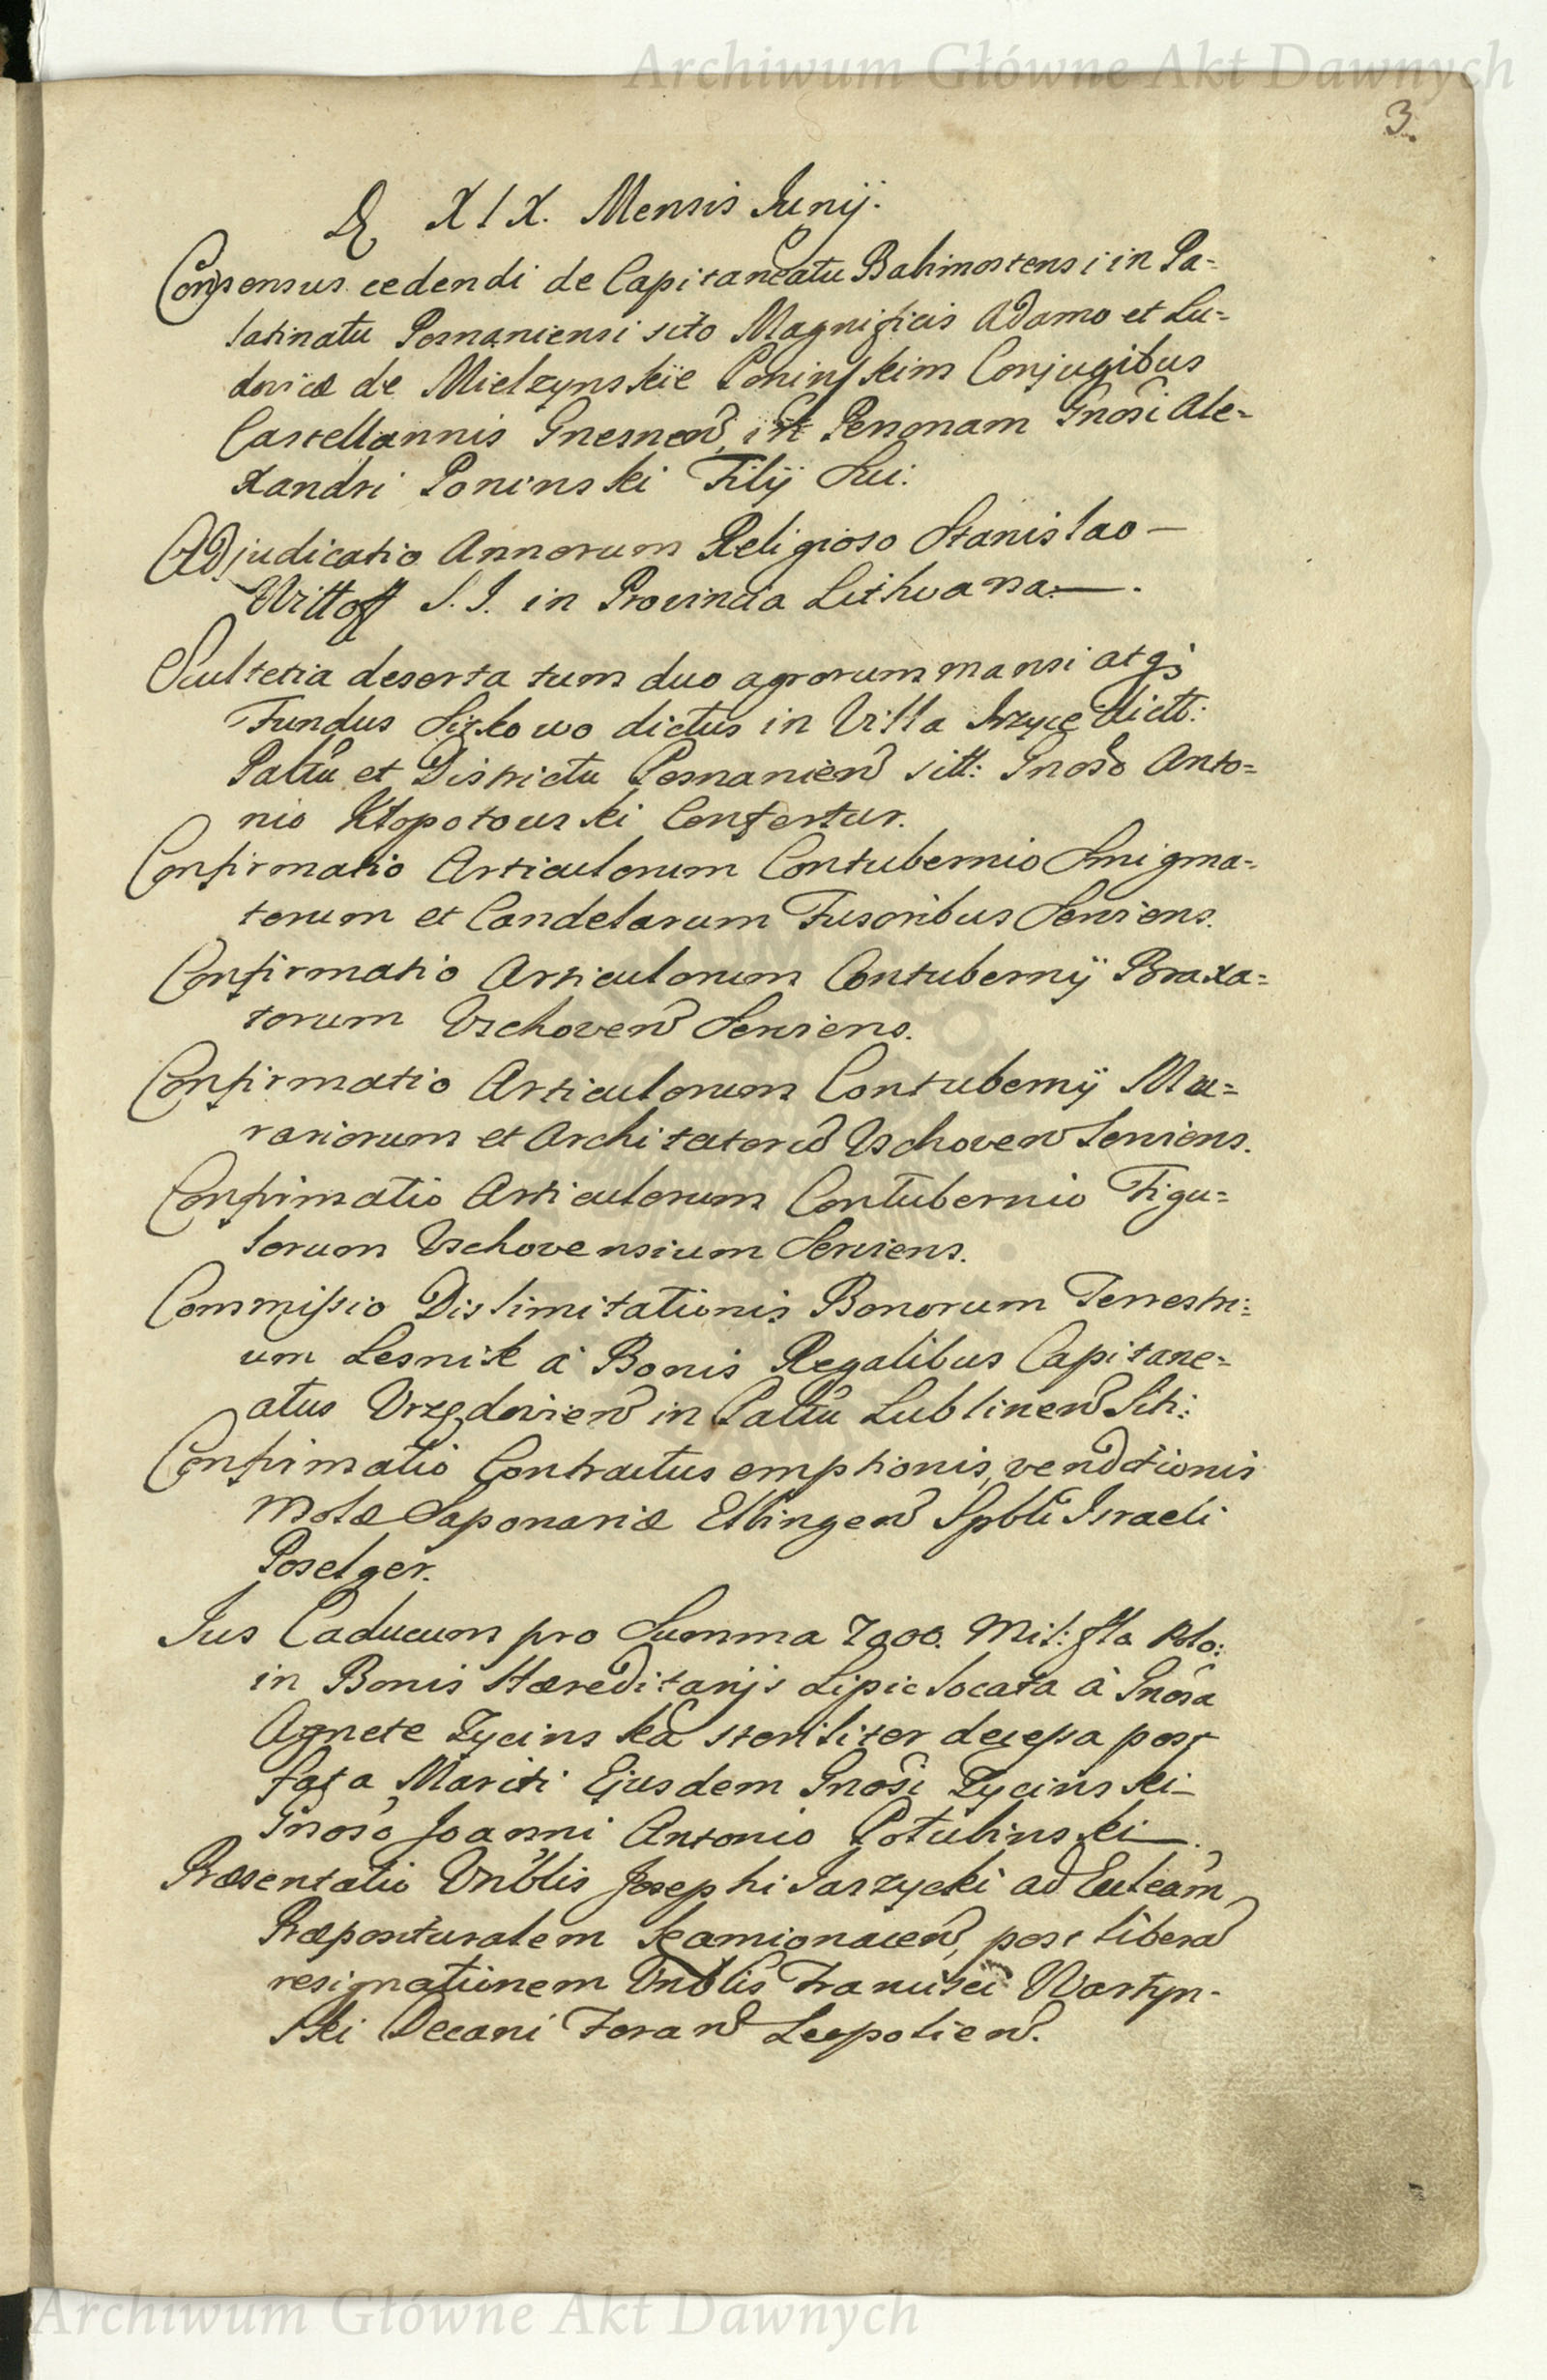 Archiwum Główne Akt Dawnych
3.
D XIX. Mensis Junij.
Consensus cedendi de Capitaneatu Babimostensi in Pa=
latinatu Posnaniensi sito Magnificis Adamo et Lu=
dovicæ de Mielzynskie Poninskim Conjugibus
Castellannis Gnesnen, in Personam Gnosi Ale=
xandri Poninski Filij Sui:
Adjudicatio Annorum Religioso Stanislao —
Wittoff S. J. in Provincia Lithvana —.
Scultetia deserta tum duo agrorum mansi atq;
Fundus dictus in Villa dictt:
Paltu et Districtu Posnanien sitt: Gnoso Anto=
nio Kłopotowski Confertur.
Confirmatio Articulorum Contubernio Smigma=
torum et Candelarum Fusoribus Serviens.
Confirmatio Articulorum Contubernij Braxa=
torum Vschoven Serviens.
Confirmatio Articulorum Contubernij Mu=
rariorum et Architectoru Vschoven Serviens.
Confirmatio Articulorum Contubernio Figu=
lorum Vschovensium Serviens.
Commissio Dislimitationis Bonorum Terrestri=
um Lesnik à Bonis Regalibus Capitane=
atus Vrzędovien in Paltu Lublinen Siti:
Confirmatio Contractus emptionis, venditionis
Molæ Saponariæ Elbingen Spbli Israeli
Poselger.
Jus Caducum pro Summa 7000. Mil: fla Polo:
in Bonis Hæreditarijs Lipie locata à Gnosa
Agnete Zycinska steriliter decessa post
fata Mariti Ejusdem Gnosi Zycinski —
Gnoso Joanni Antonio Potulinski —.
Præsentatio Vnblis Josephi Jarzycki ad Eccleam
Præposituralem Kamionacen, post libera
resignationem Vnblis Francisci Wartyn-
ski Decani Foran Leopolien.
Archiwum Główne Akt Dawnych